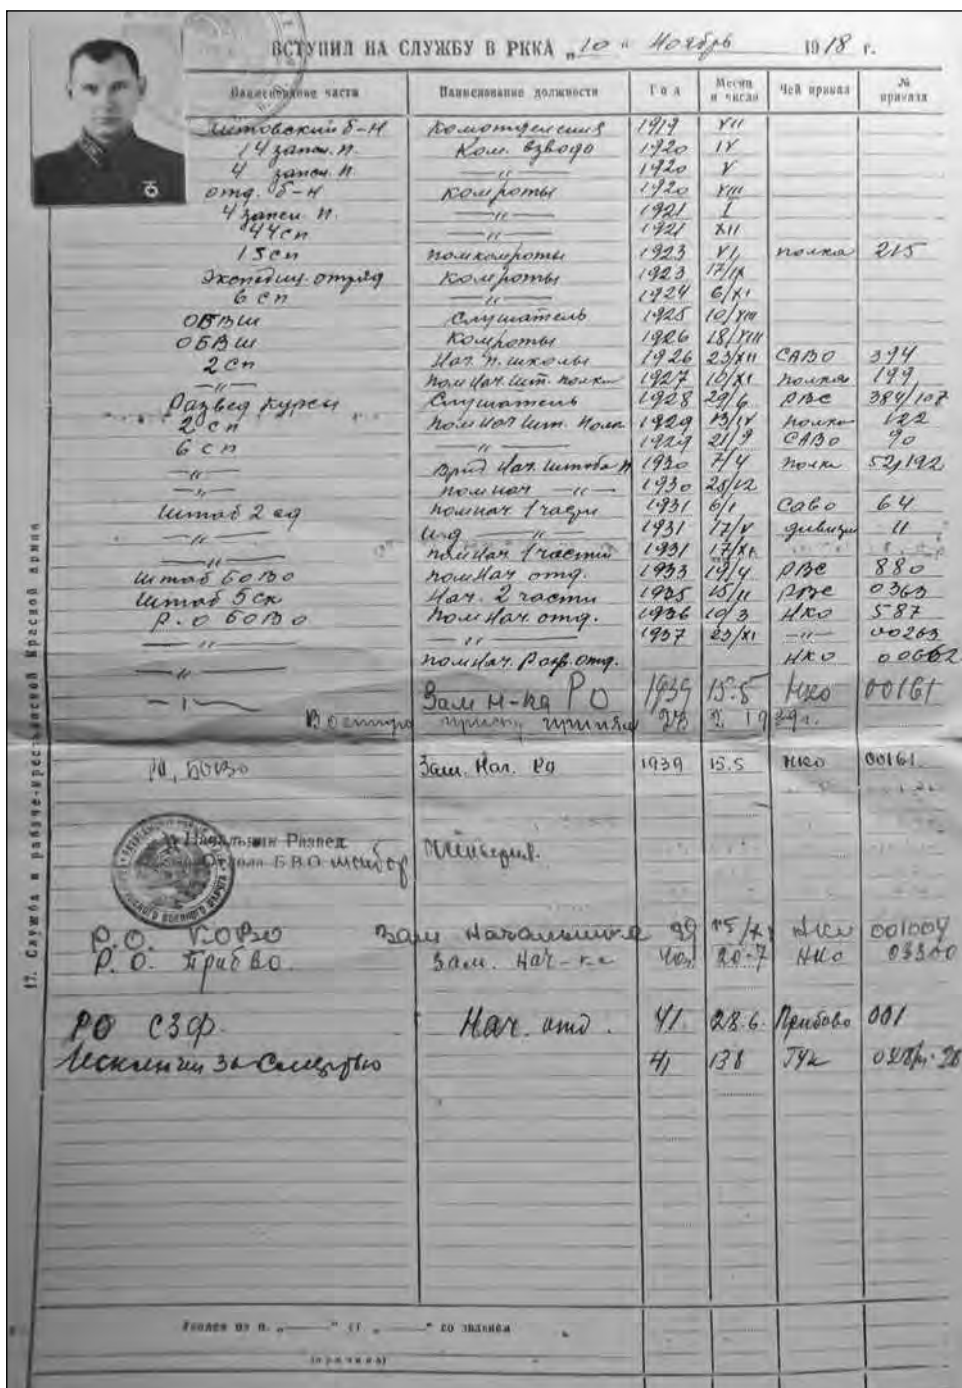 ВСТУПИЛ НА СЛУЖБУ В РККА „10" Ноябрь 1918 г.
Наименование части Наименование должности Год Месяц и число Чей приказ № приказа
Литовский б-н Комотделения 1919 VII
14 запсн. п. Ком. взвода 1920 IV
4 запсн. п. —〃— 1920 V
отд. б-н Комроты 1920 VIII
4 запсн. п. —〃— 1921 I
44 сп —〃— 1921 XII
15 сп помкомроты 1923 VI полка 215
Экспедиц. отряд Комроты 1923 17/IX
6 сп —〃— 1924 6/XI
ОБВШ Слушатель 1925 10/VIII
ОБВШ Комроты 1926 18/VIII
2 сп Нач. п. школы 1926 23/XII САВО 394
—〃— пом нач. шт. полка 1927 10/XI полка 199
Развед курсы Слушатель 1928 29/6 РВС 384/107
2 сп пом нач шт. полк 1929 13/IV полка 122
6 сп —〃— 1929 21/9 САВО 90
—〃— Врид Нач. штаба п 1930 7/4 полка 52,192
—〃— пом нач —〃— 1930 25/12
Штаб 2 сд помнач. 1 части 1931 6/I Саво 64
—〃— 1931 17/V дивизи 11
—〃— помнач. 1 части 1931 17/XI
Штаб БОВО помнач отд. 1933 19/4 РВС 880
Штаб 5 ск Нач. 2 части 1935 15/11 РВС 0363
Р.О БОВО Пом Нач. отд. 1936 19/3 НКО 587
—〃— —〃— 1937 23/XI —〃— 00263
—〃— помнач. Разв. отд. НКО 00662
—〃— Зам н-ка РО 1939 15.5 НКО 00161
Военную присягу принял 23 2 1939 г.
РО, БОВО Зам. Нач. РО 1939 15.5 НКО 00161
Начальник Развед.
Отдела Б.В.О. майор
Р.О. БОВО Зам Начальника 39 15/XI НКО 001004
Р.О. Прибво. Зам. Нач-ка 40 20-7 НКО 03300
РО СЗФ. Нач. отд. 41. 28.6. Прибово 001
Исключен за Смертью 41 ГУК
17. Служба в рабоче-крестьянской Красной армии
Уволен из п. „——" ст. „——" со званием
(причина)